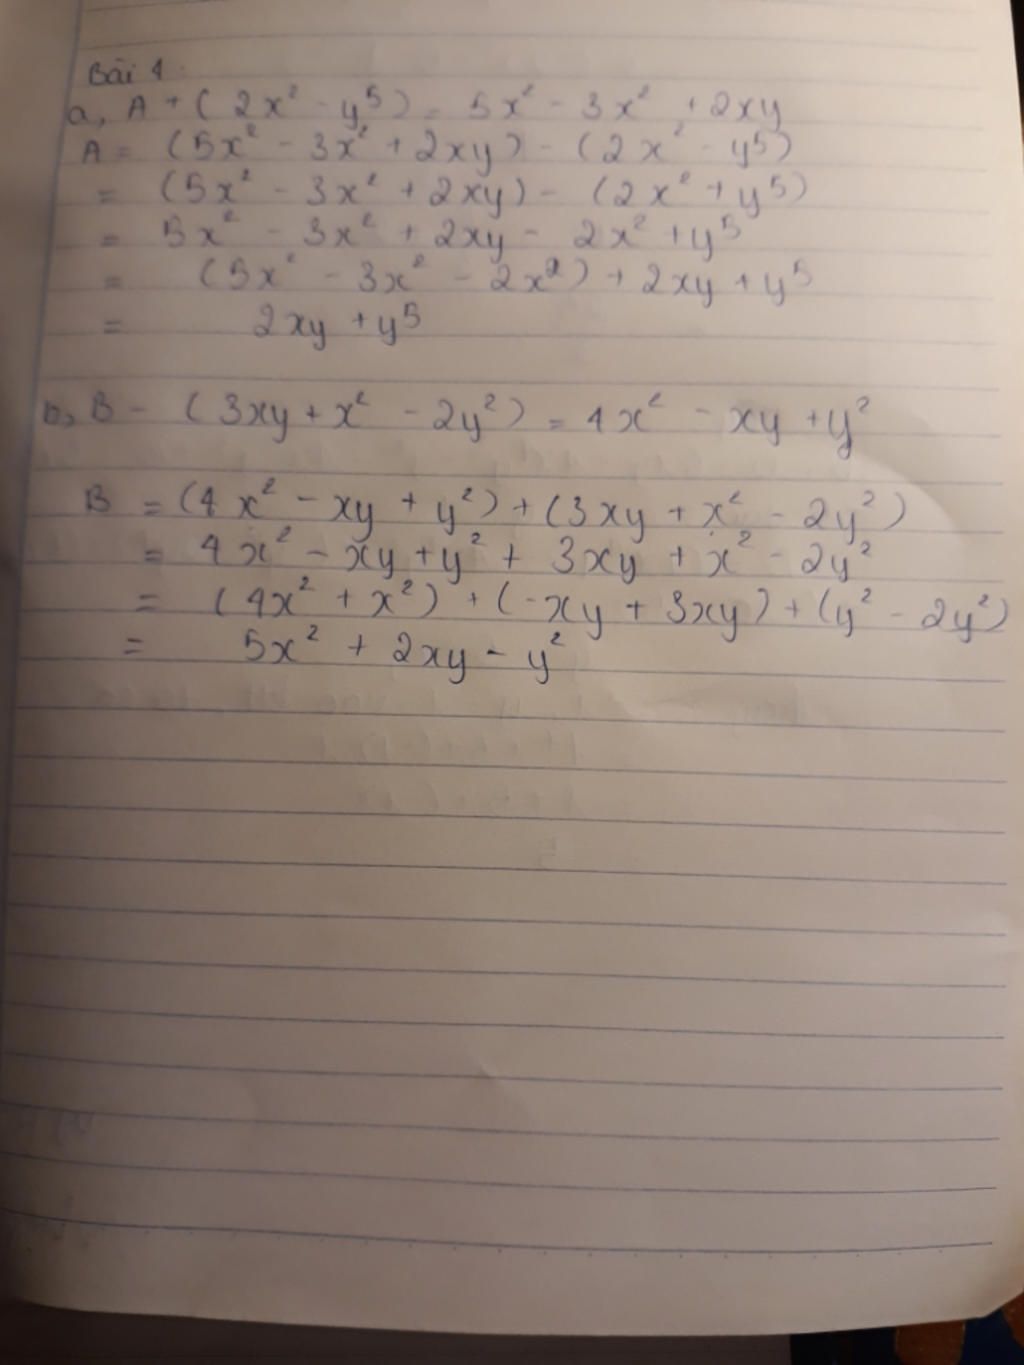 Bài 1:
a, A + (2x² - y⁵) = 5x² - 3x² + 2xy
A = (5x² - 3x² + 2xy) - (2x² - y⁵)
= (5x² - 3x² + 2xy) - (2x² + y⁵)
= 5x² - 3x² + 2xy - 2x² + y⁵
= (5x² - 3x² - 2x²) + 2xy + y⁵
= 2xy + y⁵
b, B - (3xy + x² - 2y²) = 4x² - xy + y²
B = (4x² - xy + y²) + (3xy + x² - 2y²)
= 4x² - xy + y² + 3xy + x² - 2y²
= (4x² + x²) + (-xy + 3xy) + (y² - 2y²)
= 5x² + 2xy - y²